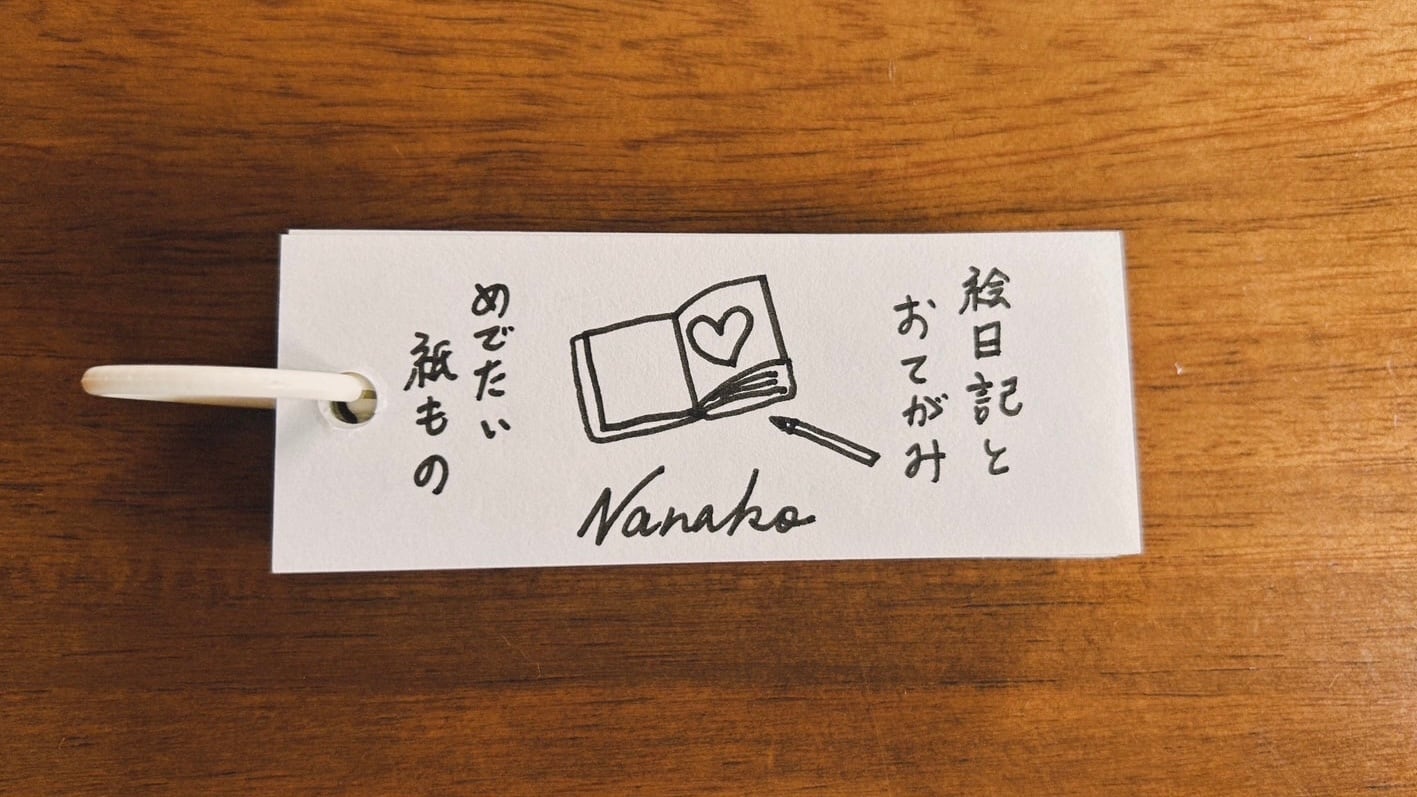 絵日記と
おてがみ
めでたい
紙もの
Nanako